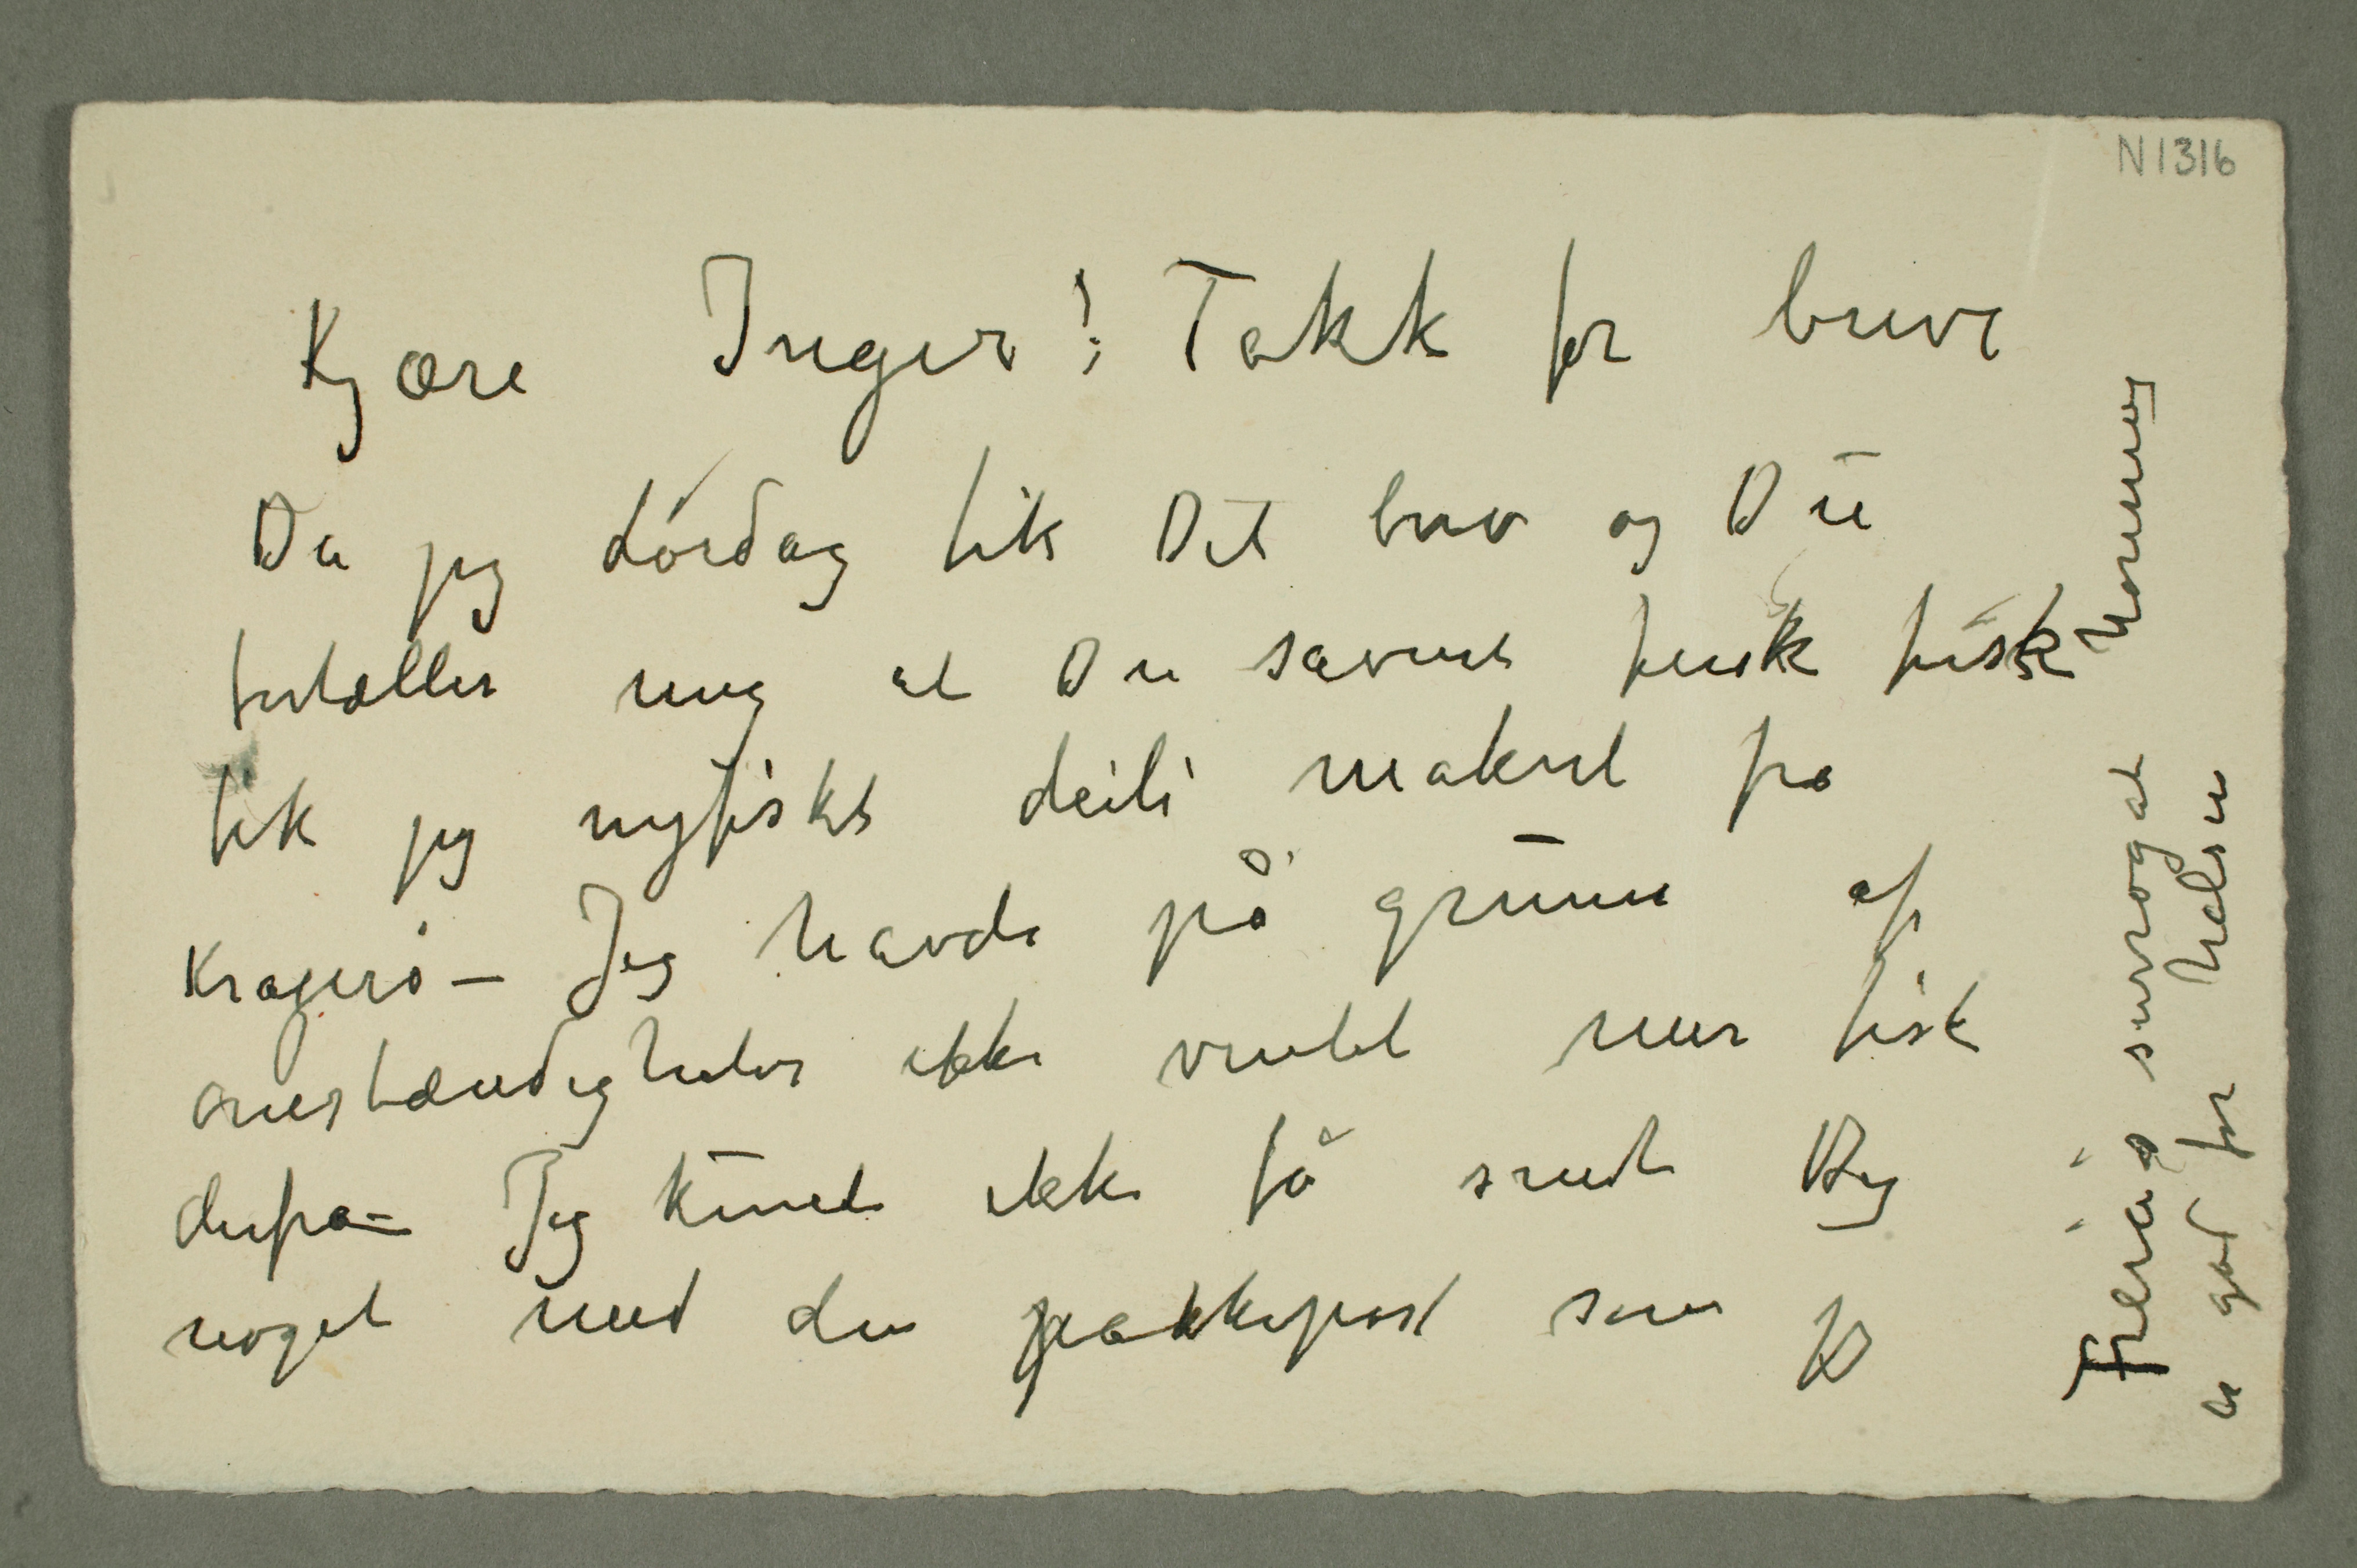 N 1316
Kjære Inger! Takk for breve
Da jeg Lördag fik Dit brev og Du
fortæller mig at Du savner fersk fisk
fik jeg nyfisket deili makrel fra
Kragerö – Jeg havde på grunn af
omstændigheder ikke ventet mer fisk
derfra – Jeg kunde ikke få sendt Deg
noget med den pakkepost som jeg
Freias surrogat honning
er god for halsen